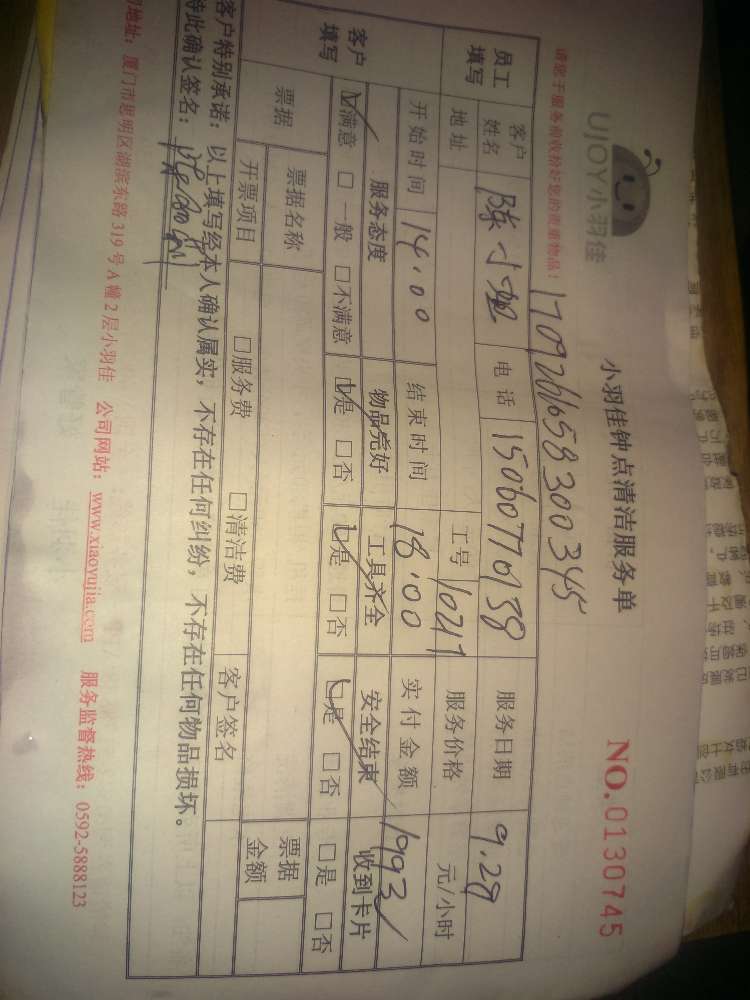 UJOY小羽佳
小羽佳钟点清洁服务单
NO.0130745
请您于服务前收拾好您的贵重物品!
1709261658300345
员工填写
客户姓名 陈小姐 电话 15060770138 服务日期 9.29
地址 工号 1024 服务价格 元/小时
开始时间 14:00 结束时间 18:00 实付金额 199元
客户填写
服务态度 物品完好 工具齐全 安全结束 收到卡片
☑满意 □一般 □不满意 ☑是 □否 ☑是 □否 ☑是 □否 □是 □否
票据 票据名称 票据金额
开票项目 □服务费 □清洁费 客户签名
客户特别承诺:以上填写经本人确认属实,不存在任何纠纷,不存在任何物品损坏。
特此确认签名:
地址:厦门市思明区湖滨东路319号A幢2层小羽佳 公司网站:www.xiaoyujia.com 服务监督热线:0592-5888123